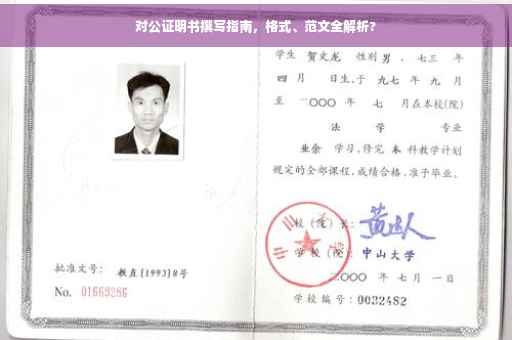 对公证明书撰写指南，格式、范文全解析?
学生 贺文龙 性别 男 、七三 年
四 月 日生,于 九七 年 九 月
至 二〇〇〇 年 七 月在本校(院)
法 学 专业
业余 学习,修完 本 科教学计划
规定的全部课程,成绩合格,准予毕业。
校(院)长:
学校(院): 中山大学
二〇〇〇 年 七 月 一 日
批准文号: 教直[1993]8号
No. 01669286
学校编号: 0032482